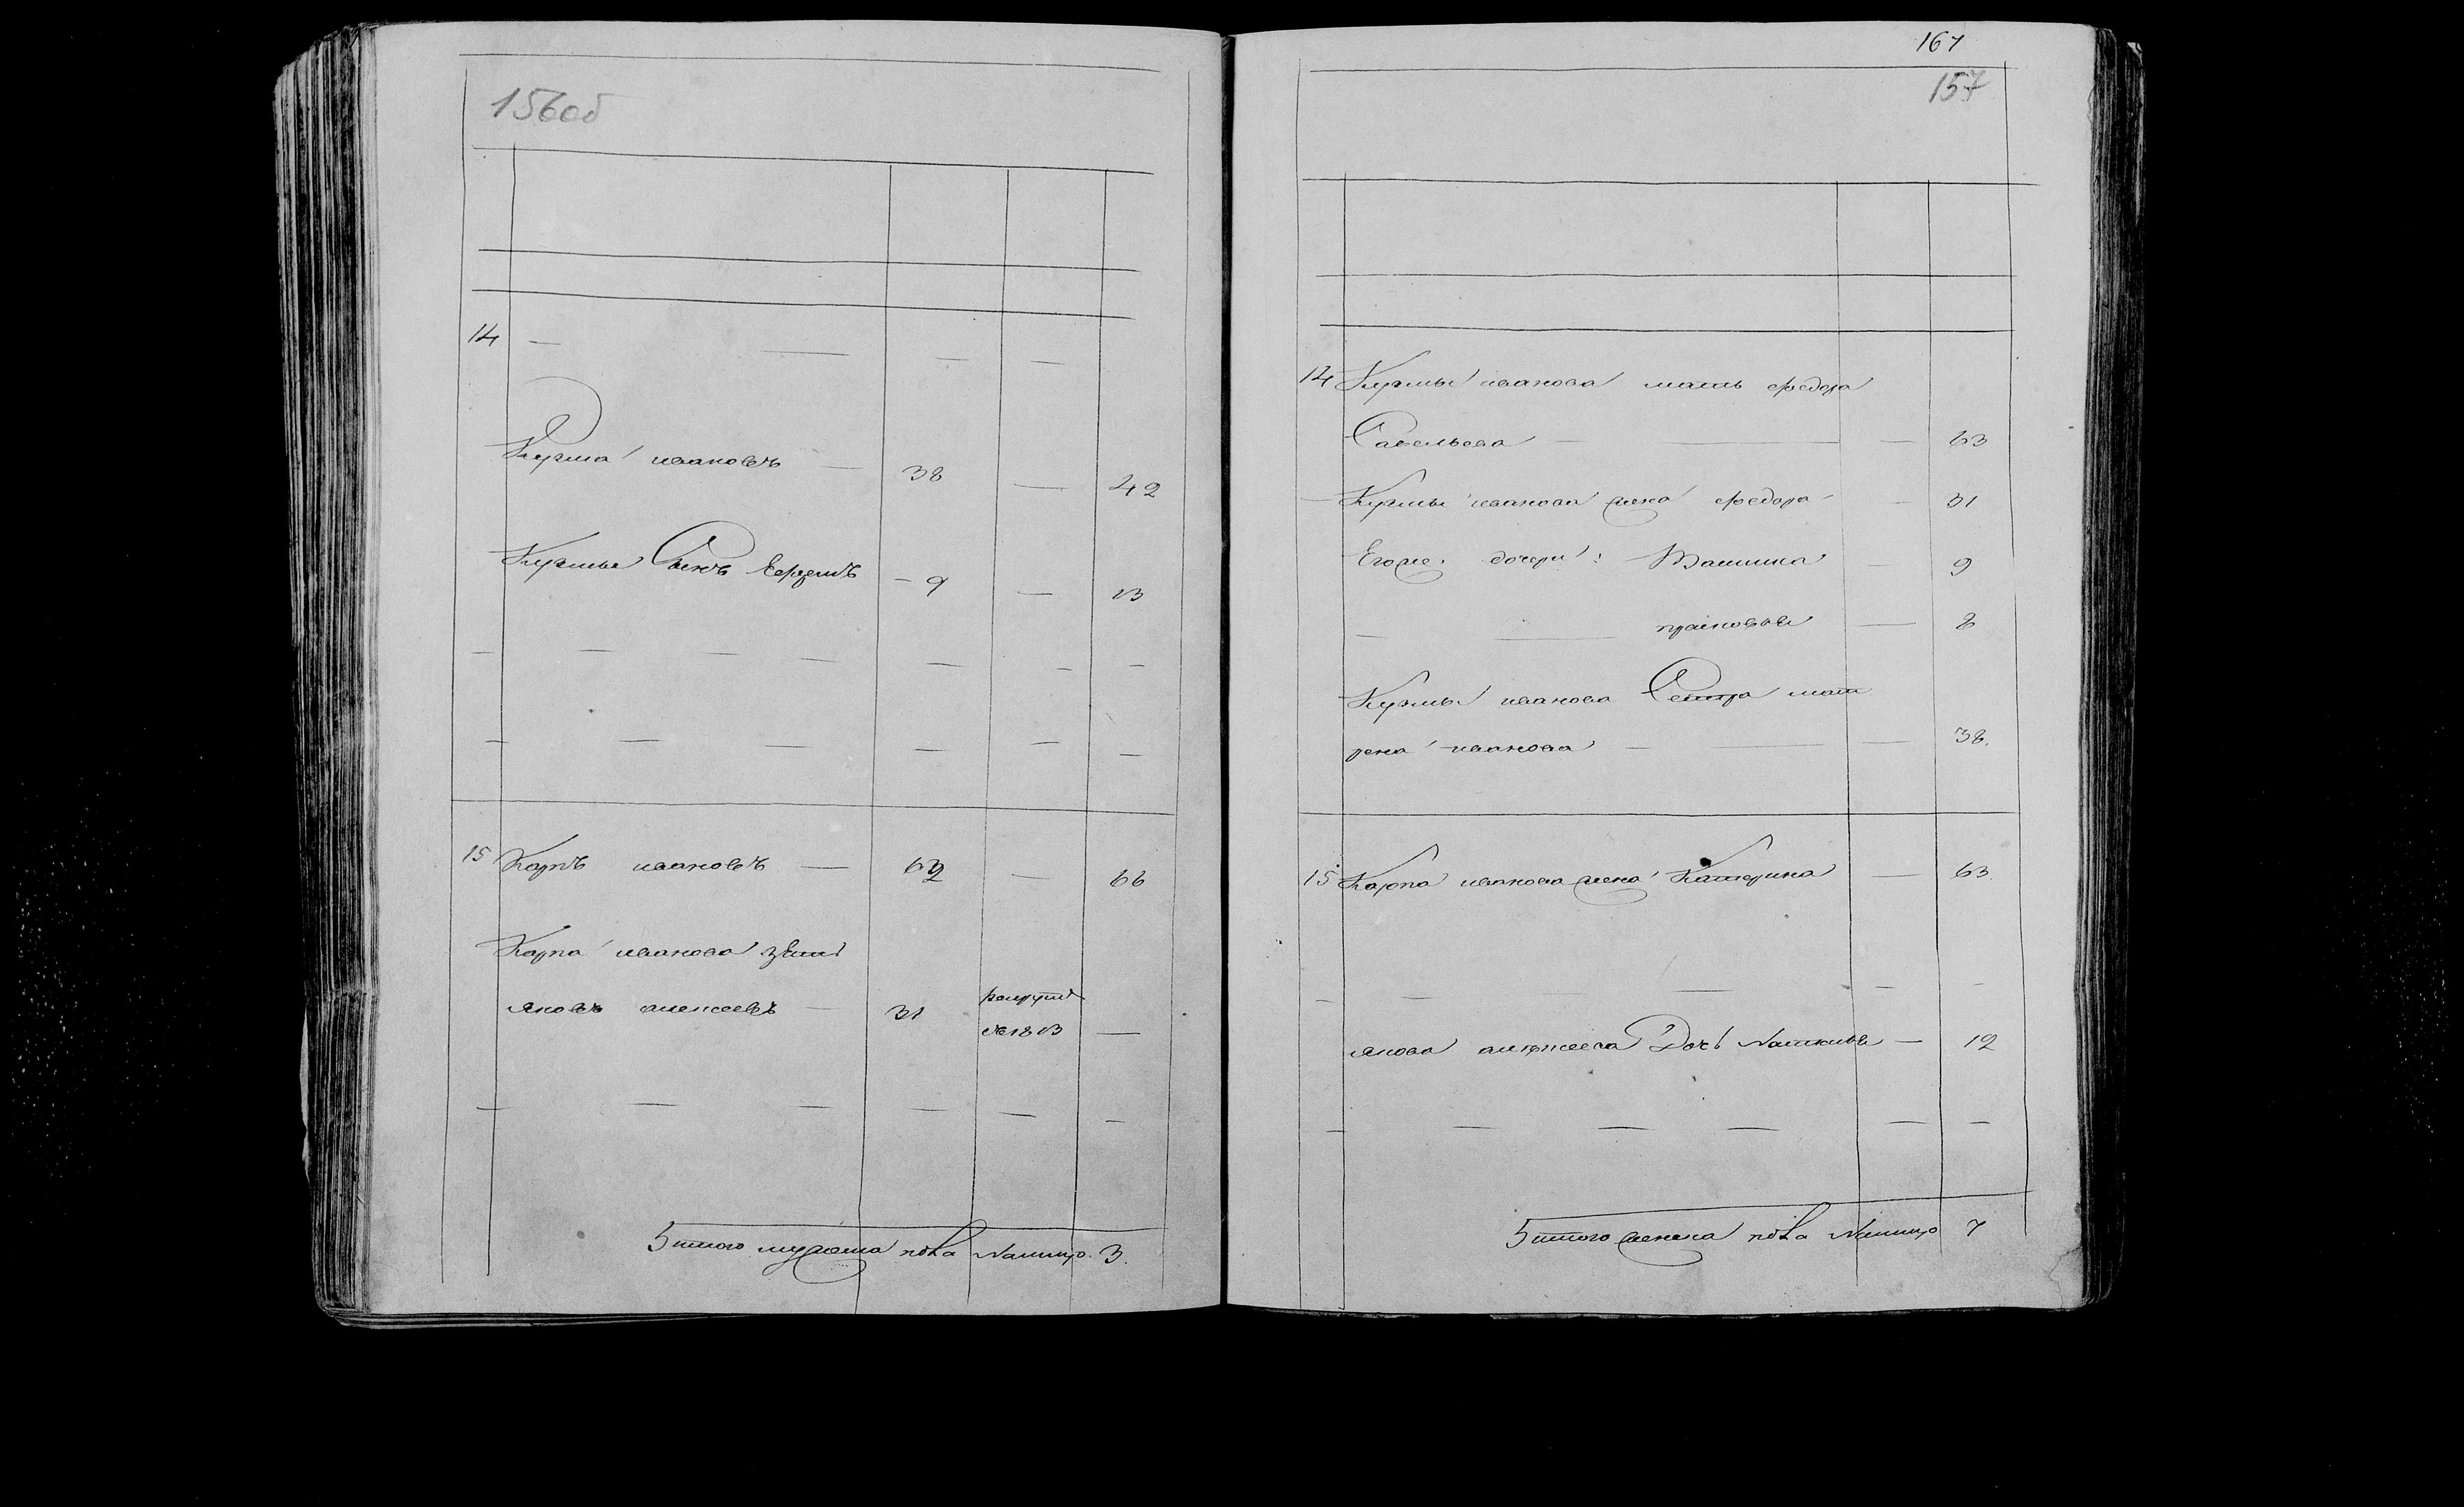 156об
14
Кузма ивановъ — 38 — 42
Кузмы Сынъ Ефремъ — 9 — 13
15 Карпъ ивановъ — 62 — 66
Карпа иванова зять
яковъ алексеевъ — 31 рекрут —
1813
Итого мужеска пола налицо. 3.
167
157
14 Кузмы иванова мать федора
Савельева — — 63
Кузмы иванова жена федора — 31
Егоже: дочери: 9
прасковья — 8
Кузмы иванова Сестра мат
рена иванова — — 38.
15 Карпа иванова жена Катерина — 63.
якова алексеева Дочь — 12
Итого женска пола налицо 7